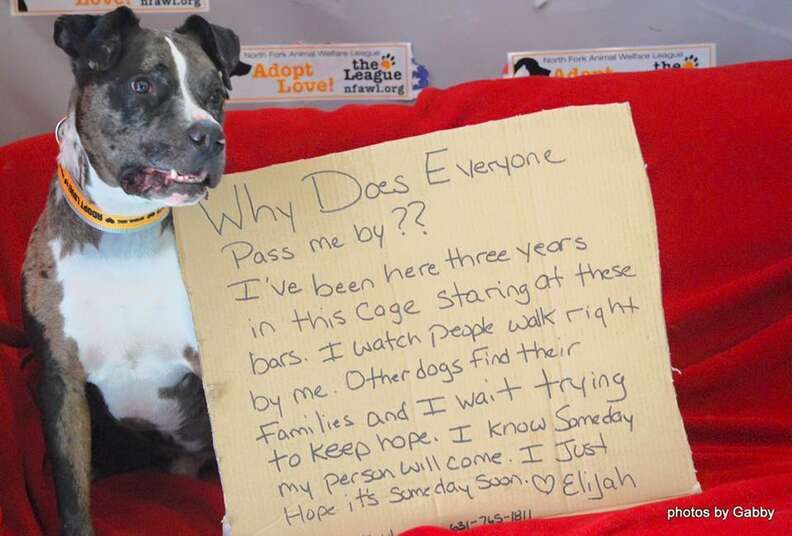 Love! nfawl.org
North Fork Animal Welfare League
Adopt the
Love! League
nfawl.org
North Fork Animal Welfare League
Adopt the
ADOPT
Why Does Everyone
Pass me by??
I've been here three years
in this cage staring at these
bars. I watch people walk right
by me. Other dogs find their
families and I wait trying
to keep hope. I know Someday
my person will come. I Just
Hope it's Someday Soon. ♡ Elijah
631-765-1811
photos by Gabby